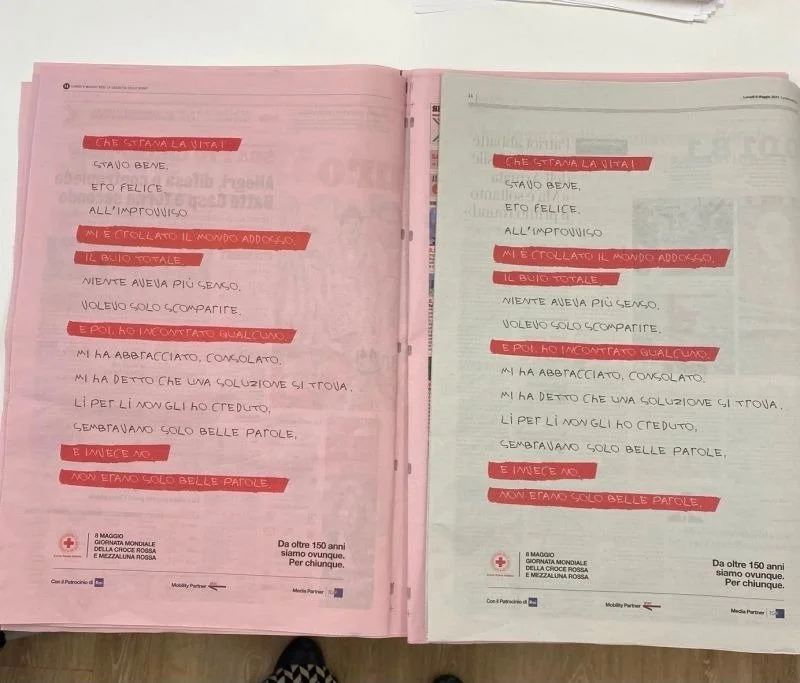 CHE STRANA LA VITA!
STAVO BENE,
ERO FELICE,
ALL'IMPROVVISO
MI È CROLLATO IL MONDO ADDOSSO.
IL BUIO TOTALE.
NIENTE AVEVA PIÙ SENSO.
VOLEVO SOLO SCOMPARIRE.
E POI, HO INCONTRATO QUALCUNO.
MI HA ABBRACCIATO, CONSOLATO.
MI HA DETTO CHE UNA SOLUZIONE SI TROVA.
LÌ PER LÌ NON GLI HO CREDUTO,
SEMBRAVANO SOLO BELLE PAROLE,
E INVECE NO.
NON ERANO SOLO BELLE PAROLE.
8 MAGGIO
GIORNATA MONDIALE
DELLA CROCE ROSSA
E MEZZALUNA ROSSA
Da oltre 150 anni
siamo ovunque.
Per chiunque.
Con il Patrocinio di Rai
Mobility Partner
Media Partner TG
CHE STRANA LA VITA!
STAVO BENE,
ERO FELICE.
ALL'IMPROVVISO
MI È CROLLATO IL MONDO ADDOSSO.
IL BUIO TOTALE.
NIENTE AVEVA PIÙ SENSO.
VOLEVO SOLO SCOMPARIRE.
E POI, HO INCONTRATO QUALCUNO.
MI HA ABBRACCIATO, CONSOLATO.
MI HA DETTO CHE UNA SOLUZIONE SI TROVA.
LÌ PER LÌ NON GLI HO CREDUTO,
SEMBRAVANO SOLO BELLE PAROLE,
E INVECE NO.
NON ERANO SOLO BELLE PAROLE.
8 MAGGIO
GIORNATA MONDIALE
DELLA CROCE ROSSA
E MEZZALUNA ROSSA
Da oltre 150 anni
siamo ovunque.
Per chiunque.
Con il Patrocinio di Rai
Mobility Partner
Media Partner TG